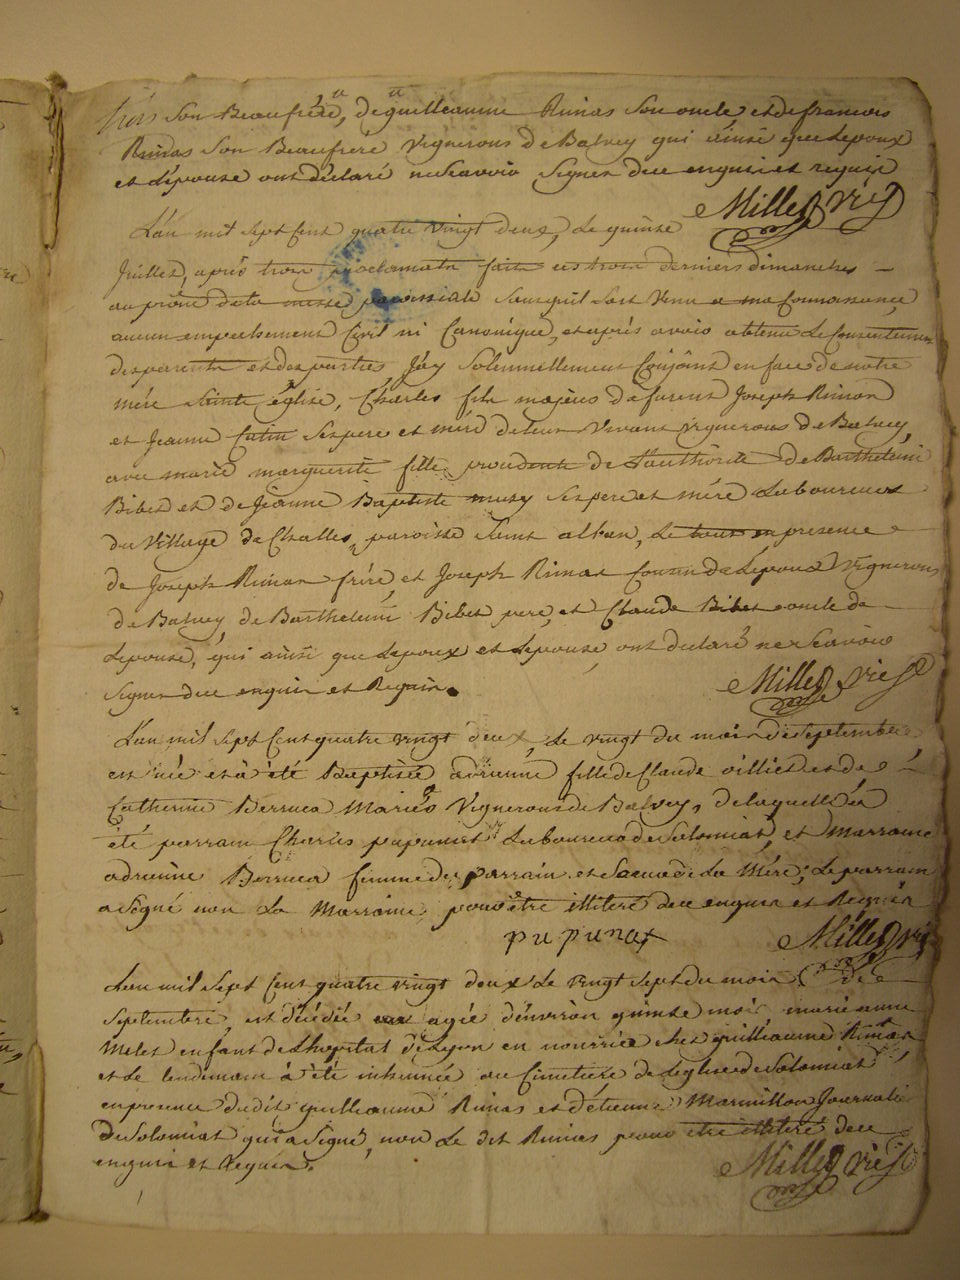 son Beaufrere, de guilleaume Rimas son oncle, et de francois
Rimas son Beaufreré vignerons de Balvey qui ainsi que Lepoux
et Lépouse ont déclaré ne scavoir signer de ce enquis et requis
Millet vic
L'an mil sept cent quatre vingt deux, Le quinze
Juillet, aprés trois proclamatn faites les trois derniers dimanches
au prône de la messe paroissiale sans quil soit venu a ma connoissance
aucun empechement Civil ni Canonique, et aprés avoir obtenu Le Consentement
des parents et des parties J'ay solemnellement Conjoint en face de notre
mére sainte église, Charles fils majeur de furent Joseph Rimas
et Jeanne ses pere et mére de leur vivant vignerons de Balvey,
avec marie marguerite fille, procedente de L'authorité de Barthelemi
Bibet et de Jeanne Baptiste ses pere et mére Laboureurs
du village de Challes, paroisse saint alban, Le tout en presence
de Joseph Rimas frére, et Joseph Rimas Cousin de Lépoux vignerons
de Balvey, de Barthelemi Bibet pere, et Claude Bibet oncle de
Lepouse, qui ainsi que Lepoux et Lepouse, ont declaré ne scavoir
signer de ce enquis et Requis.
Millet vic
L'an mil sept Cent quatre vingt deux, Le vingt du mois de septembre
est née et à été Baptisée adrienne fille de Claude et de
Catherine Berruca Mariés vignerons de Balvey, de laquelle à
été parrain Charles pupunat Laboureur de Solomiat, et marraine
adrienne Berruca femme du parrain et soeur de La Mére; Le parrain
a signé non La Marraine, pour être illiteré de ce enquis et Requis
pupunat
Millet vic
L'an mil sept Cent quatre vingt deux Le vingt sept du mois de
septembre, est décédée agée d'environ quinze mois marie anne
Melet enfant de L'hopital de Lyon en nourrice chez guilleaume Rimas
et Le lendemain à été inhumée au Cimetiére de L'eglise de Solomiat
en presence dudit guilleaume Rimas et d'étienne Marmillon Journalier
de Solomiat qui a signé, non Le dit Rimas pour être illiteré de ce
enquis et Requis.
Millet vic